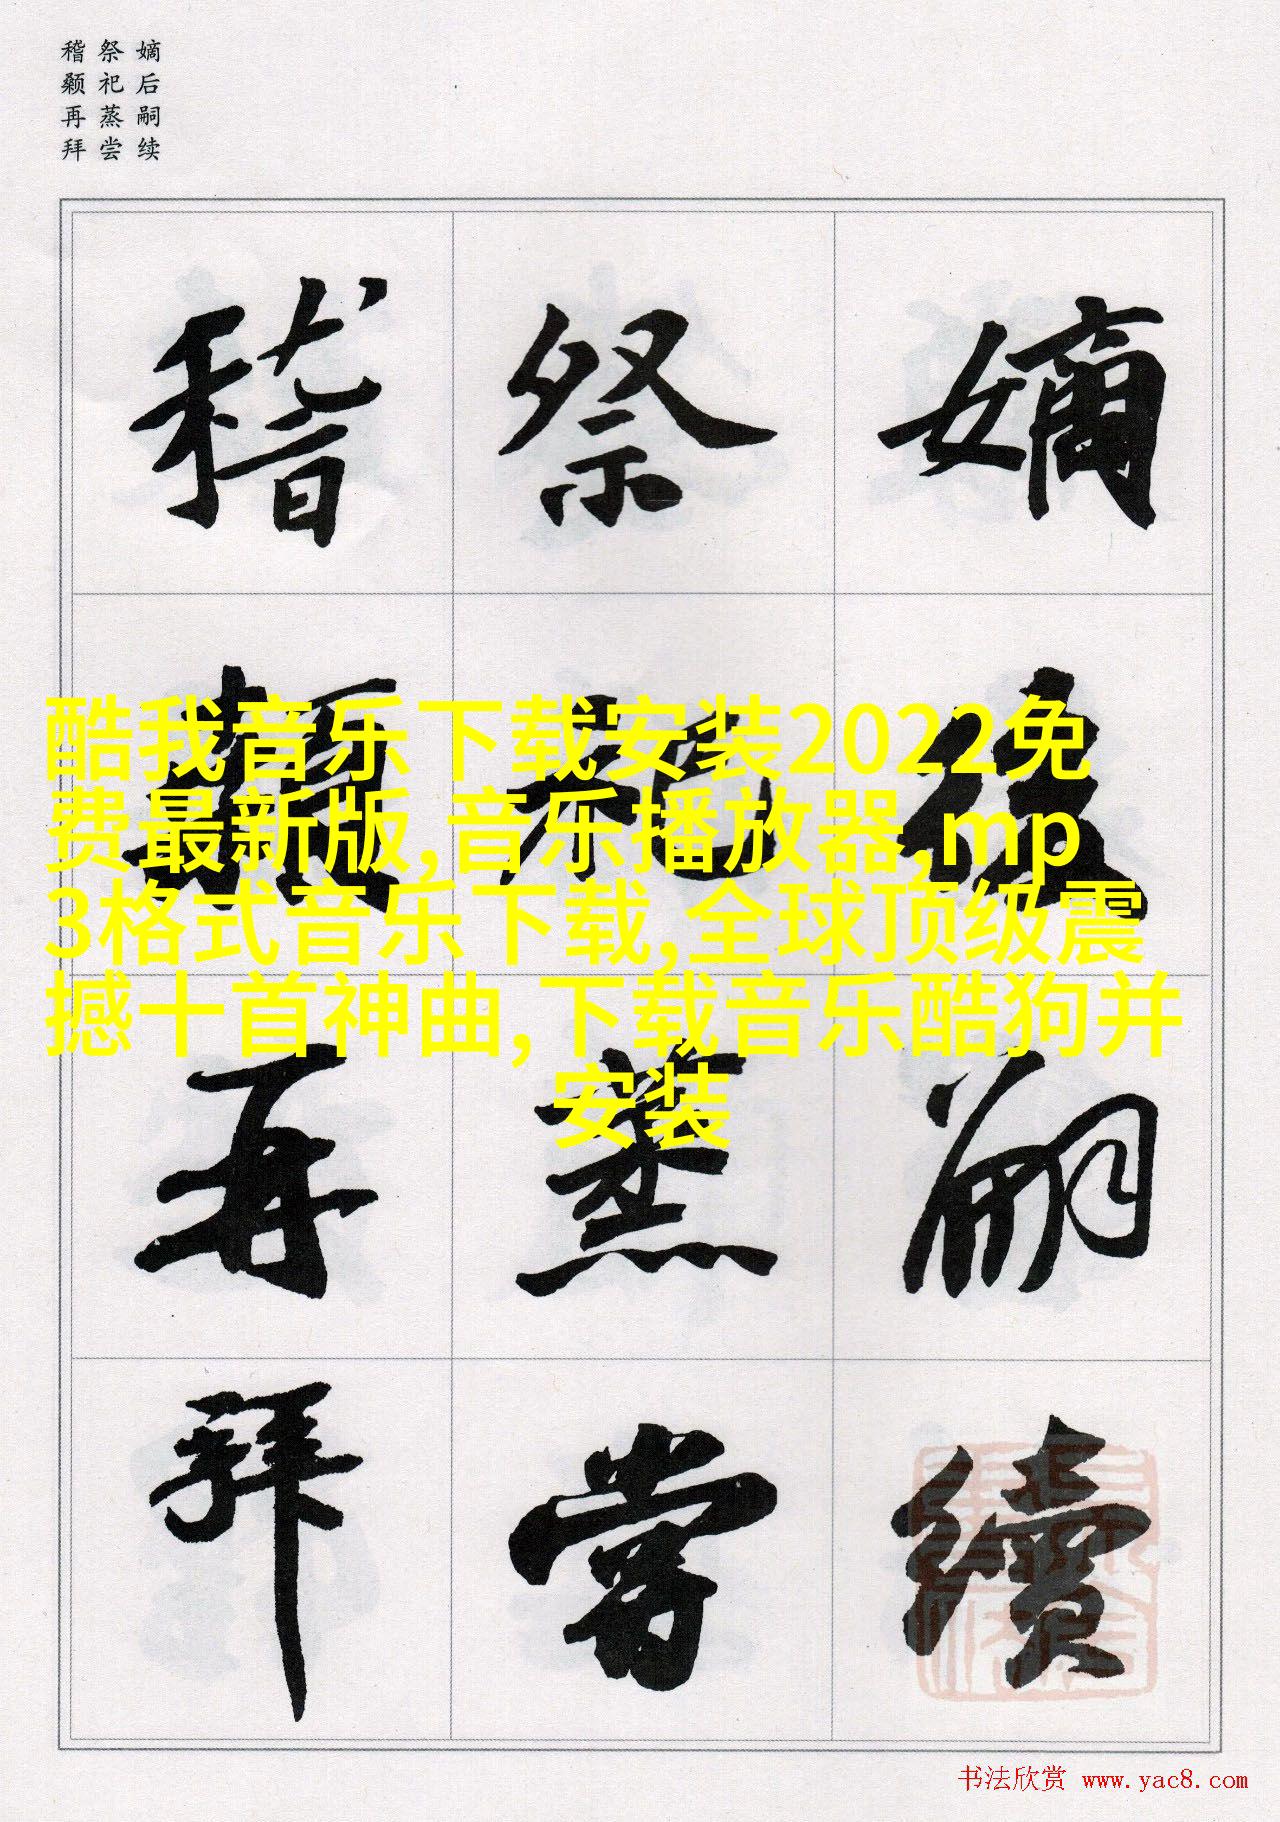 嫡后嗣续
祭祀蒸尝
稽颡再拜
嫡後嗣續
祭祀蒸嘗
稽顙再拜
酷我音乐下载安装2022免
费最新版,音乐播放器,mp
3格式音乐下载,全球顶级震
撼十首神曲,下载音乐酷狗并
安装
书法欣赏 www.yac8.com